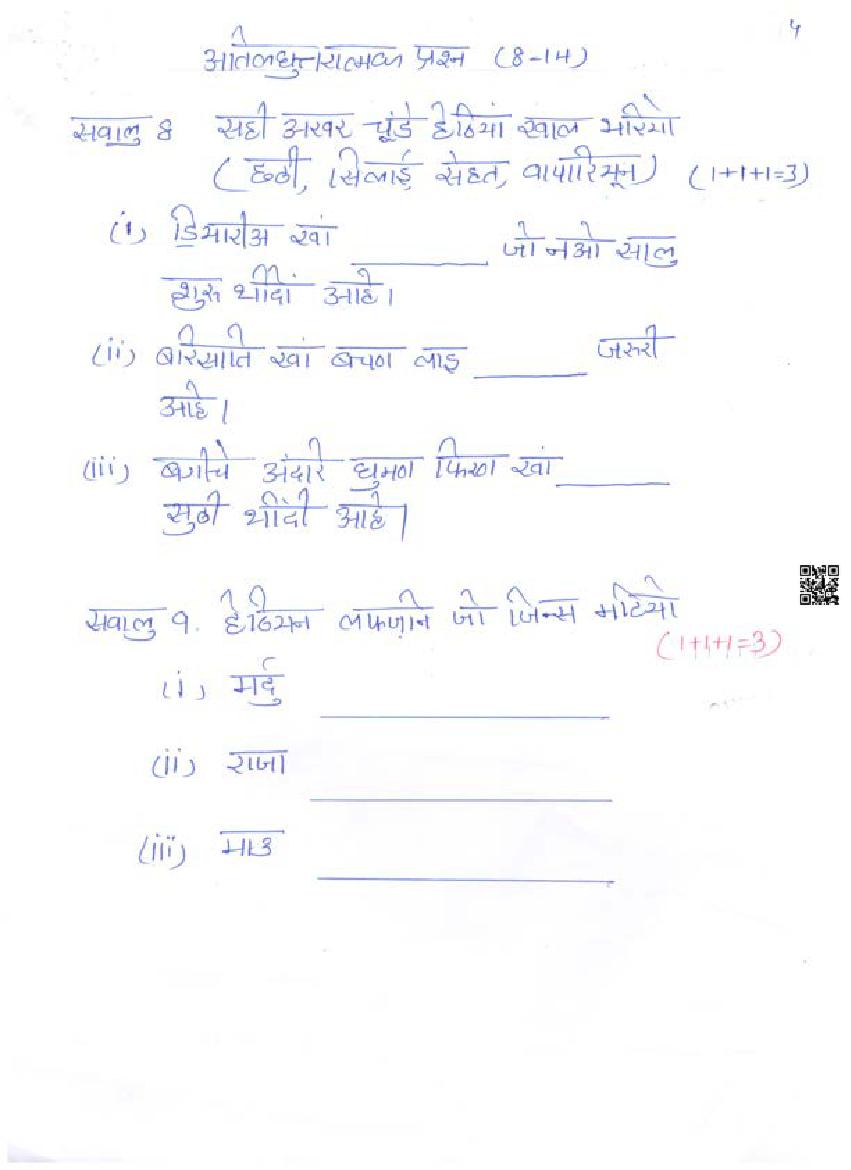 ५
अतिलघुत्तरात्मक प्रश्न (8-14)
सवालु 8 सही अखर चूंडे हेठियां खाल भरियो
(छठी, सिलाई सेहत, वापारियुन) (1+1+1=3)
(i) ड॒ियारीअ खां ______ जो नओ सालु
शुरू थींदो आहे।
(ii) बरिसाति खां बचण लाइ ______ जरुरी
आहे।
(iii) बगीचे अंदरि घुमण फिरण खां ______
सुठी थींदी आहे।
सवालु 9. हेठियनि लफ़्ज़नि जो जिन्स मटियो
(1+1+1=3)
(i) मर्दु ______
(ii) राजा ______
(iii) माउ ______